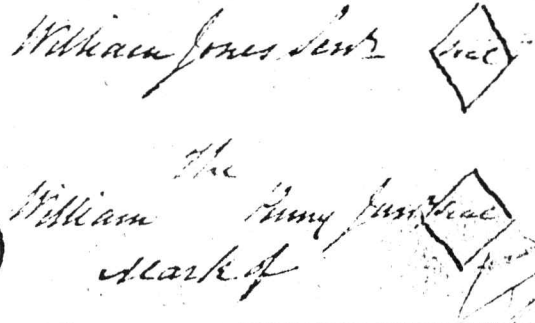 William Jones Senr seal
The
William Penny Junr seal
Mark of